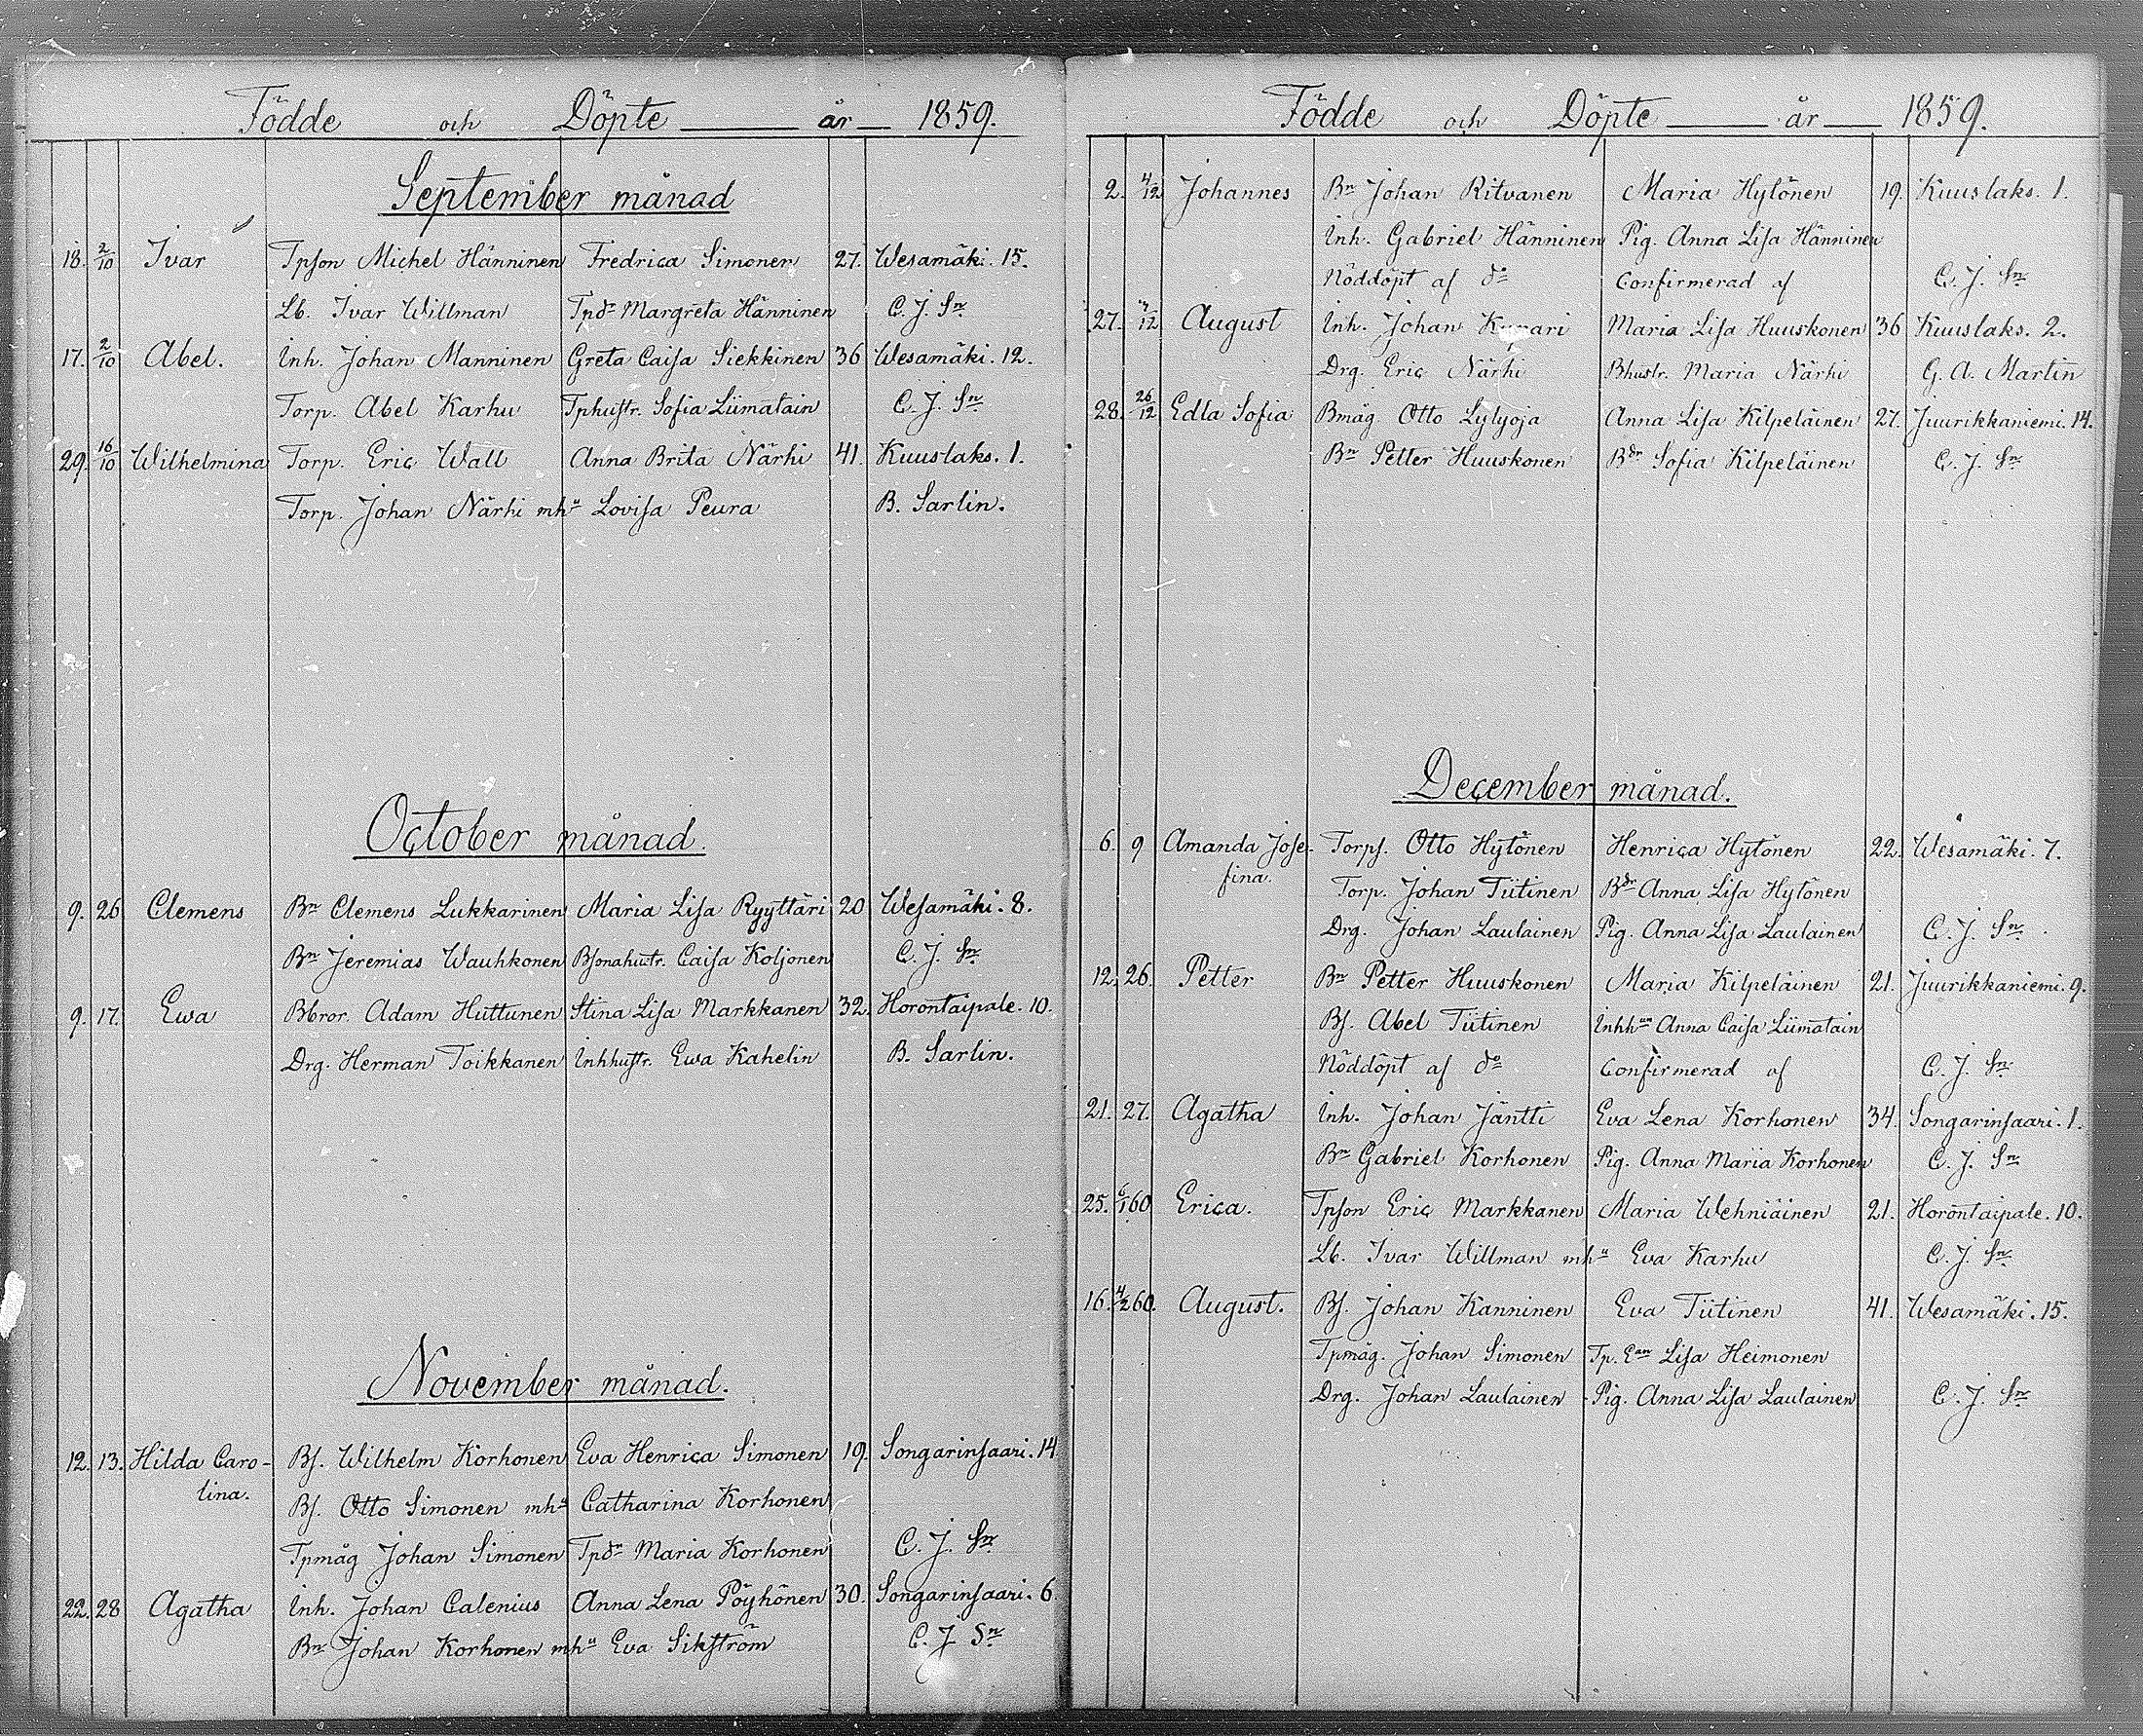 Födde och Döpte år 1859.
September månad
18. 2/10 Ivar Tpson Michel Hänninen Fredrica Simonen 27. Wesamäki. 15.
Lb. Ivar Willman Tpdr Margreta Hänninen C. J. Sn
17. 2/10 Abel. Inh. Johan Manninen Greta Caisa Siekkinen 36 Wesamäki. 12.
Torp. Abel Karhu Tphustr. Sofia Liimatain C. J. Sn
29. 16/10 Wilhelmina Torp. Eric Wall Anna Brita Närhi 41. Kuuslaks. 1.
Torp. Johan Närhi mhu Lovisa Peura B. Sarlin.
October månad.
9. 26 Clemens Bn Clemens Lukkarinen Maria Lisa Ryyttäri 20 Wesamäki. 8.
Bn Jeremias Wauhkonen Bsonahustr. Caisa Koljonen C. J. Sn
9. 17. Ewa Bbror. Adam Huttunen Stina Lisa Markkanen 32. Horontaipale. 10.
Drg. Herman Toikkanen Inhhustr. Ewa Kahelin B. Sarlin.
November månad.
12. 13. Hilda Caro- Bs. Wilhelm Korhonen Eva Henrica Simonen 19. Songarinsaari. 14
lina. Bs. Otto Simonen mhu Catharina Korhonen
Tpmåg Johan Simonen Tpdr Maria Korhonen C. J. Sn
22. 28 Agatha Inh. Johan Calenius Anna Lena Pöyhönen 30. Songarinsaari. 6.
Bn Johan Korhonen mhu Eva Sikström C. J. Sn
Födde och Döpte år 1859.
2. 4/12 Johannes Bn Johan Ritvanen Maria Hytönen 19. Kuuslaks. 1.
Inh. Gabriel Hänninen Pig. Anna Lisa Hänninen
Nöddöpt af do Confirmerad af C. J. Sn
27. /12 August Inh. Johan Maria Lisa Huuskonen 36 Kuuslaks. 2.
Drg. Eric Närhi Bhustr. Maria Närhi G. A. Martin
28. 26/12 Edla Sofia Bmåg Otto Lylyoja Anna Lisa Kilpeläinen 27. Juurikkaniemi. 14.
Bn Petter Huuskonen Bdr Sofia Kilpeläinen C. J. Sn
December månad.
6. 9 Amanda Jose- Torps. Otto Hytönen Henrica Hytönen 22. Wesamäki. 7.
fina. Torp. Johan Tiitinen Bdr Anna Lisa Hytönen
Drg. Johan Laulainen Pig. Anna Lisa Laulainen C. J. Sn
12. 26. Petter Bn Petter Huuskonen Maria Kilpeläinen 21. Juurikkaniemi. 9.
Bs. Abel Tiitinen Inhhun Anna Caisa Liimatain
Nöddöpt af do Confirmerad af C. J. Sn
21. 27. Agatha Inh. Johan Jäntti Eva Lena Korhonen 34. Songarinsaari. 1.
Bn Gabriel Korhonen Pig. Anna Maria Korhonen C. J. Sn
25. 6/1 60 Erica. Tpson Eric Markkanen Maria Wehniäinen 21. Horontaipale. 10.
Lb. Ivar Willman mhu Eva Karhu C. J. Sn
16. 4/2 60. August. Bs. Johan Kanninen Eva Tiitinen 41. Wesamäki. 15.
Tpmåg. Johan Simonen Tp. Ean Lisa Heimonen
Drg. Johan Laulainen Pig. Anna Lisa Laulainen C. J. Sn